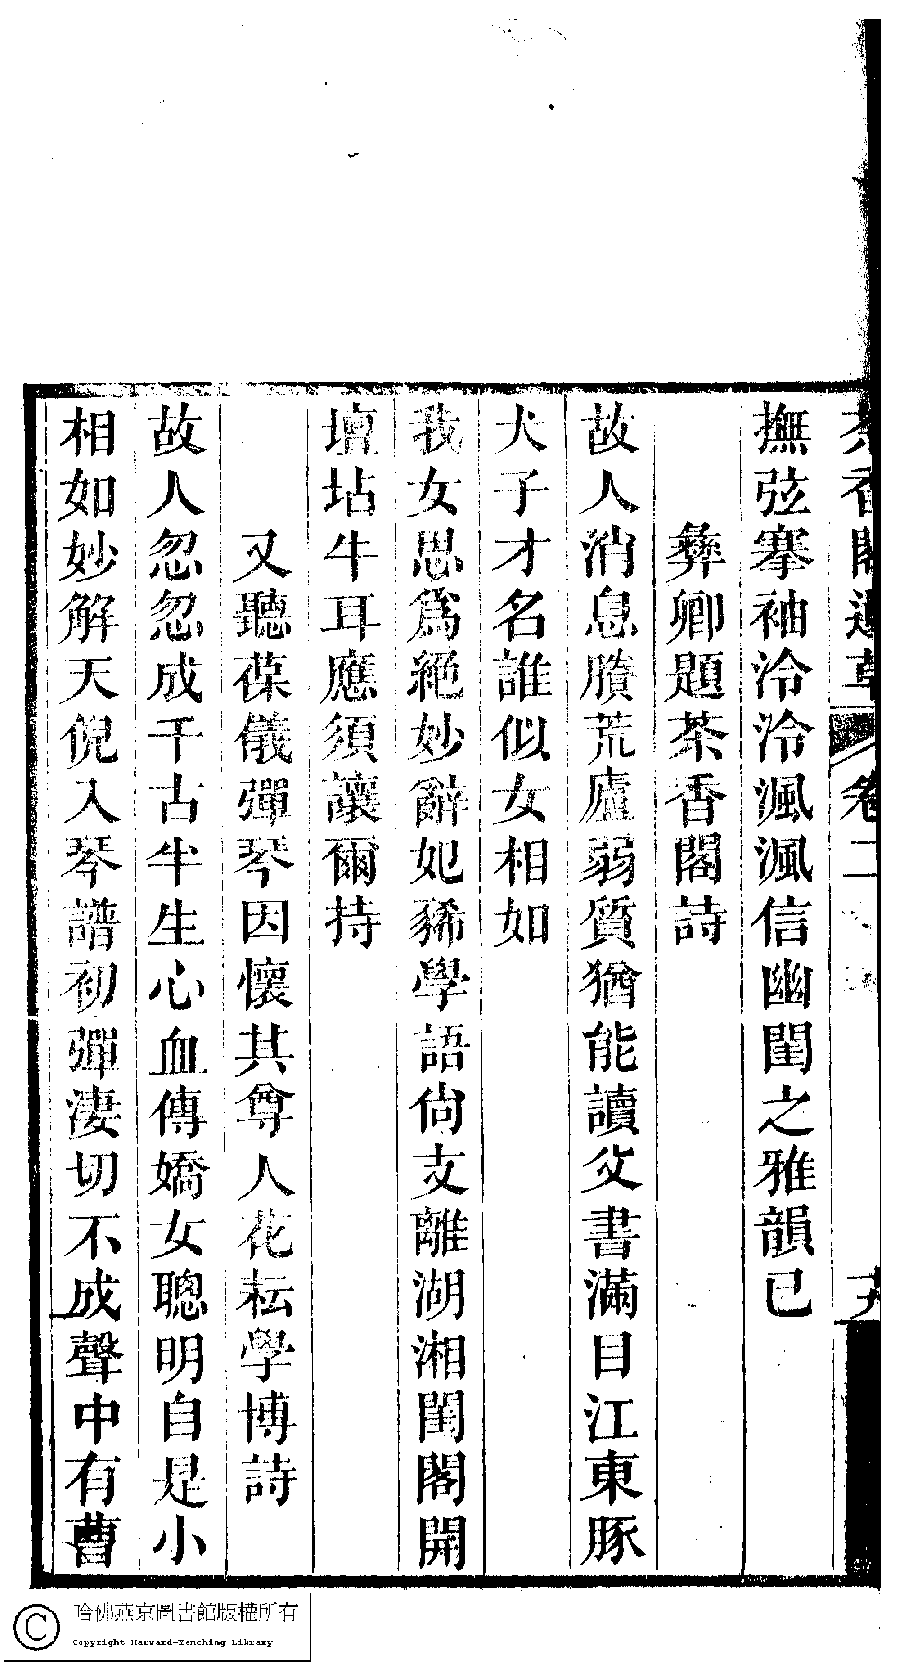 茶香閣遺草 卷二
撫弦搴袖泠泠渢渢信幽閨之雅韻已
彝卿題茶香閣詩
故人消息賸荒廬弱質猶能讀父書滿目江東豚
犬子才名誰似女相如
我女思爲絶妙辭妃豨學語尙支離湖湘閨閣開
壇坫牛耳應須讓爾持
又聽葆儀彈琴因懷其尊人花耘學博詩
故人忽忽成千古半生心血傳嬌女聰明自是小
相如妙解天倪入琴譜初彈淒切不成聲中有曹
哈佛燕京圖書館版權所有
Copyright Harvard-Yenching Library